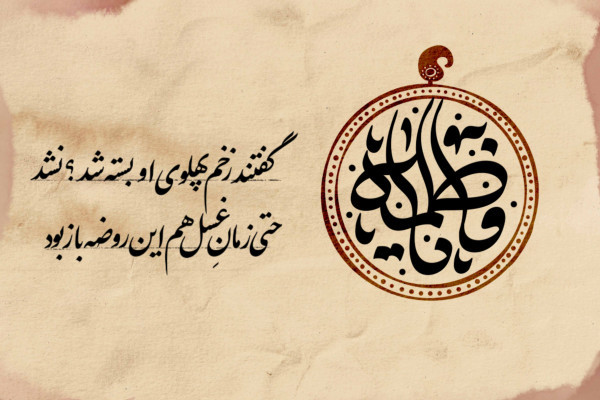 گفتند زخم پهلوی او بسته شد؟ نشد
حتی زمانِ غسل هم این روضه باز بود
یا فاطمة الزهراء